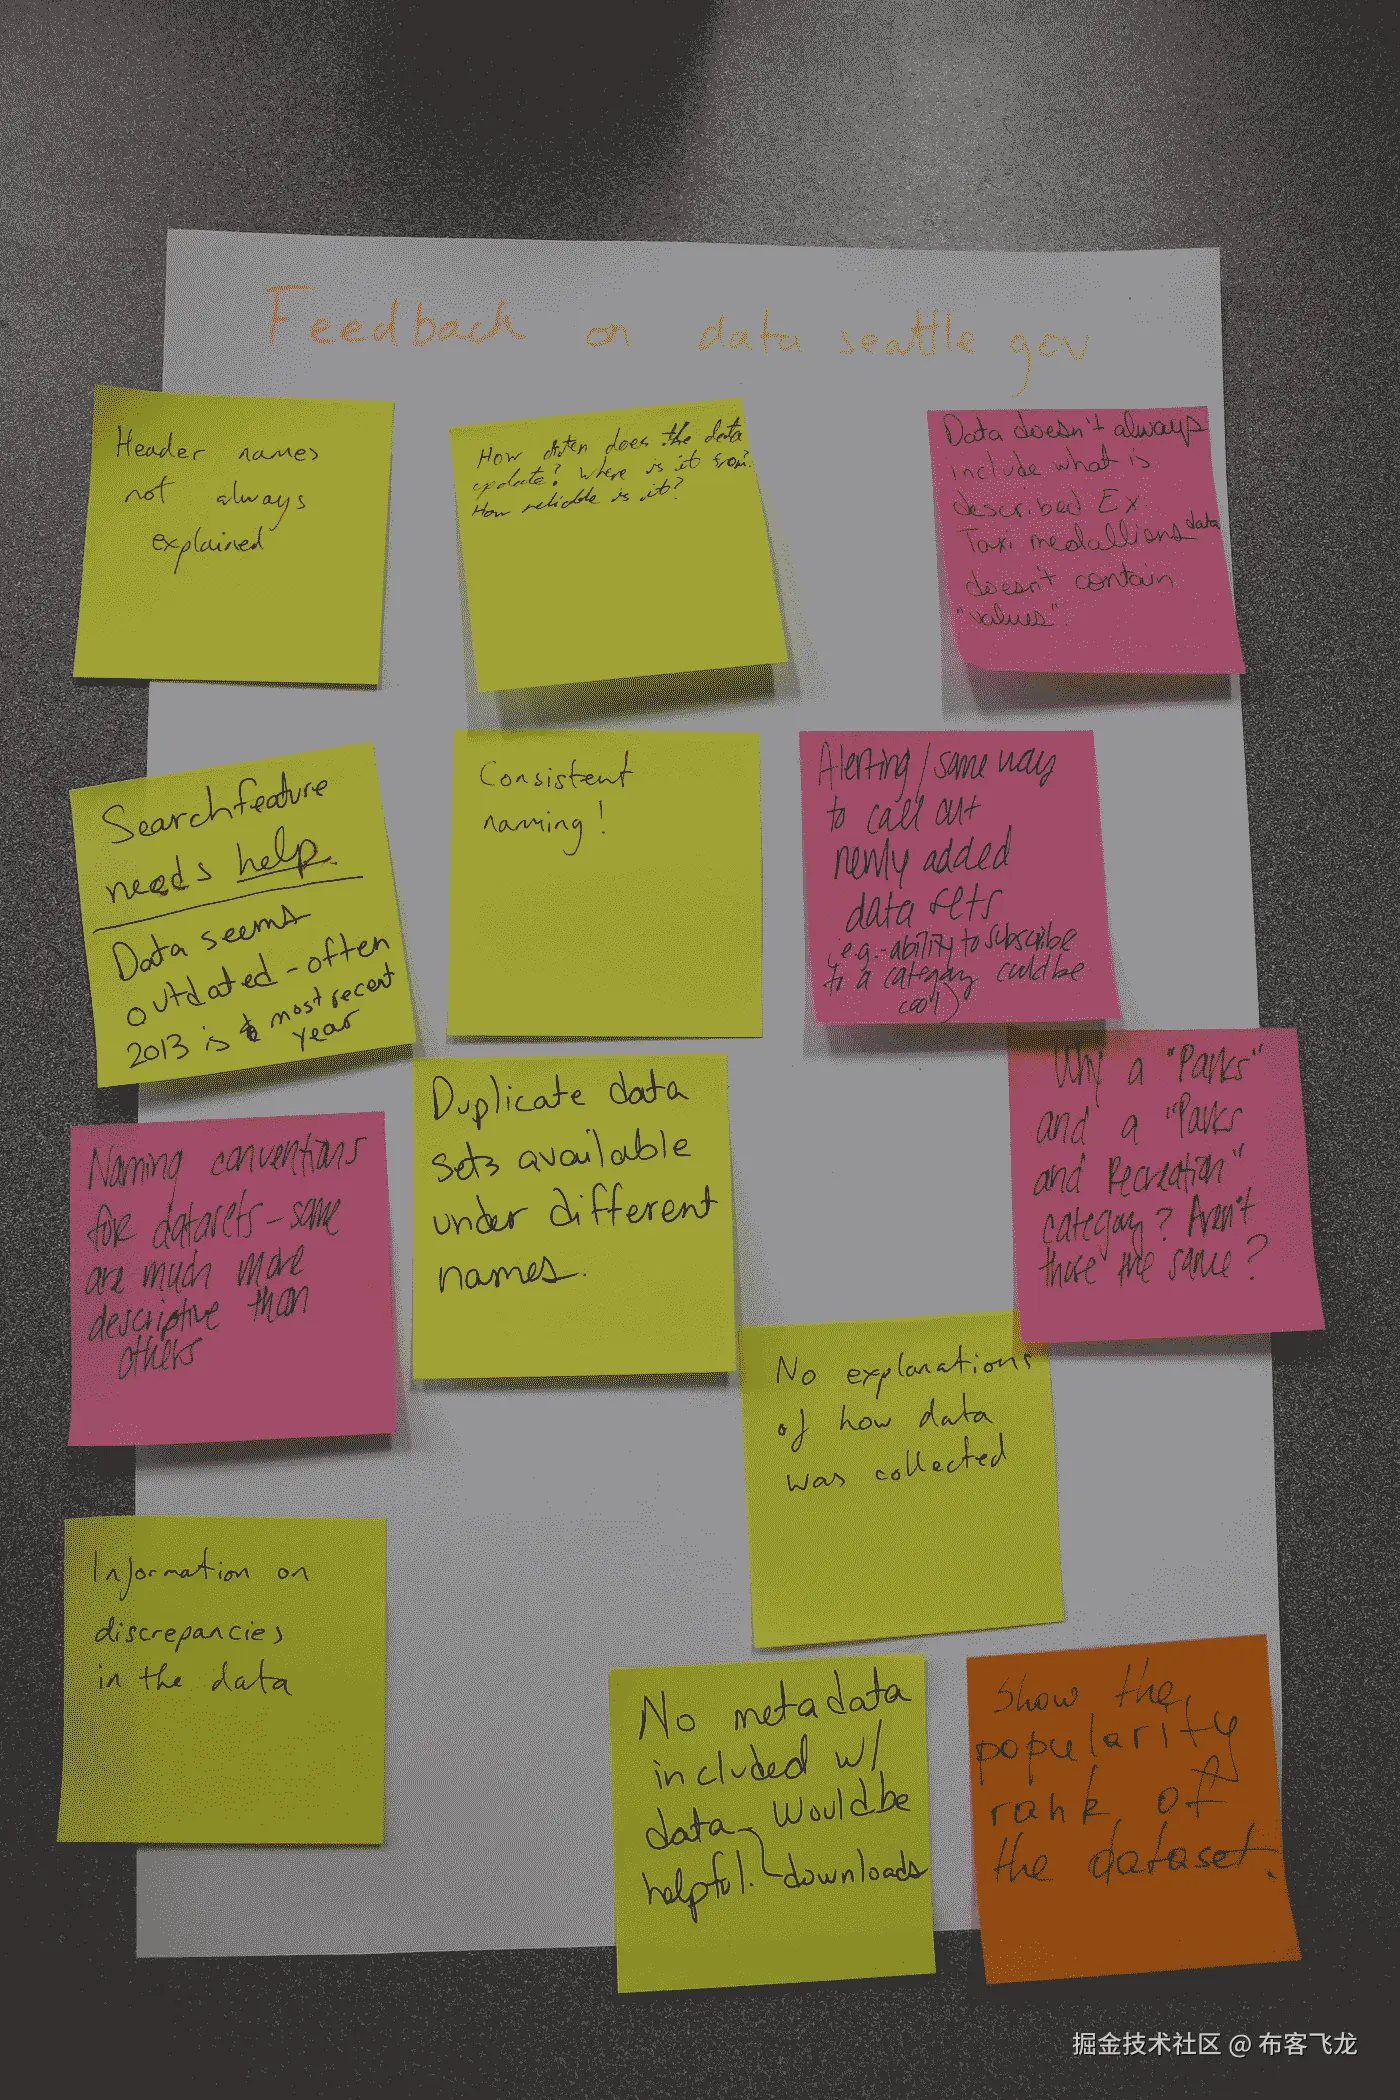 Feedback on data seattle.gov
Header names
not always
explained
How often does the data
update? Where is it from?
How reliable is it?
Data doesn't always
include what is
described Ex.
Taxi medallions data
doesn't contain
"values".
Search feature
needs help.
Data seems
outdated - often
2013 is most recent
year
Consistent
naming!
Alerting/some way
to call out
newly added
data sets
(e.g. - ability to subscribe
to a category could be
cool)
Naming conventions
for datasets - some
are much more
descriptive than
others
Duplicate data
sets available
under different
names.
Why a "Parks"
and a "Parks
and Recreation"
category? Aren't
those the same?
No explanations
of how data
was collected
Information on
discrepancies
in the data
No metadata
included w/
data. Would be
helpful. downloads
Show the
popularity
rank of
the dataset.
掘金技术社区 @ 布客飞龙